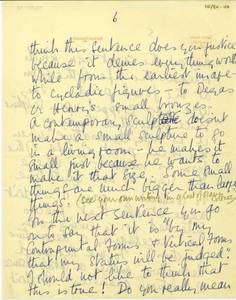 6
think this sentence does injustice
because it denies everything worth
while from the earliest
to cycladic figures – to Degas
or Henry's small bronzes.
A contemporary sculptor doesn't
make a small sculpture to go
in a living room – he makes it
small just because he wants to
make it that size. Some small
things are much bigger than large
things. (see your own writing
In the next sentence you go
on to say that "it is "by my
contrapuntal forms & vertical forms
that my status will be judged".
I should not like to think that
this is true! Do you really mean